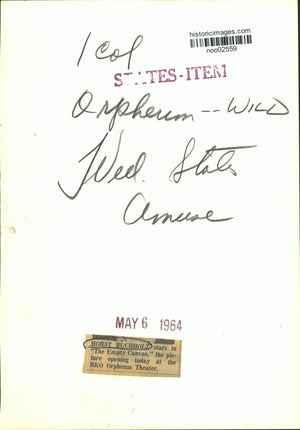 historicimages.com
noo02559
1 Col
STATES-ITEM
Orpheum -- WILD
Wed. States
Amuse
MAY 6 1964
HORST BUCHHOLZ stars in
"The Empty Canvas," the pic-
ture opening today at the
RKO Orpheum Theater.